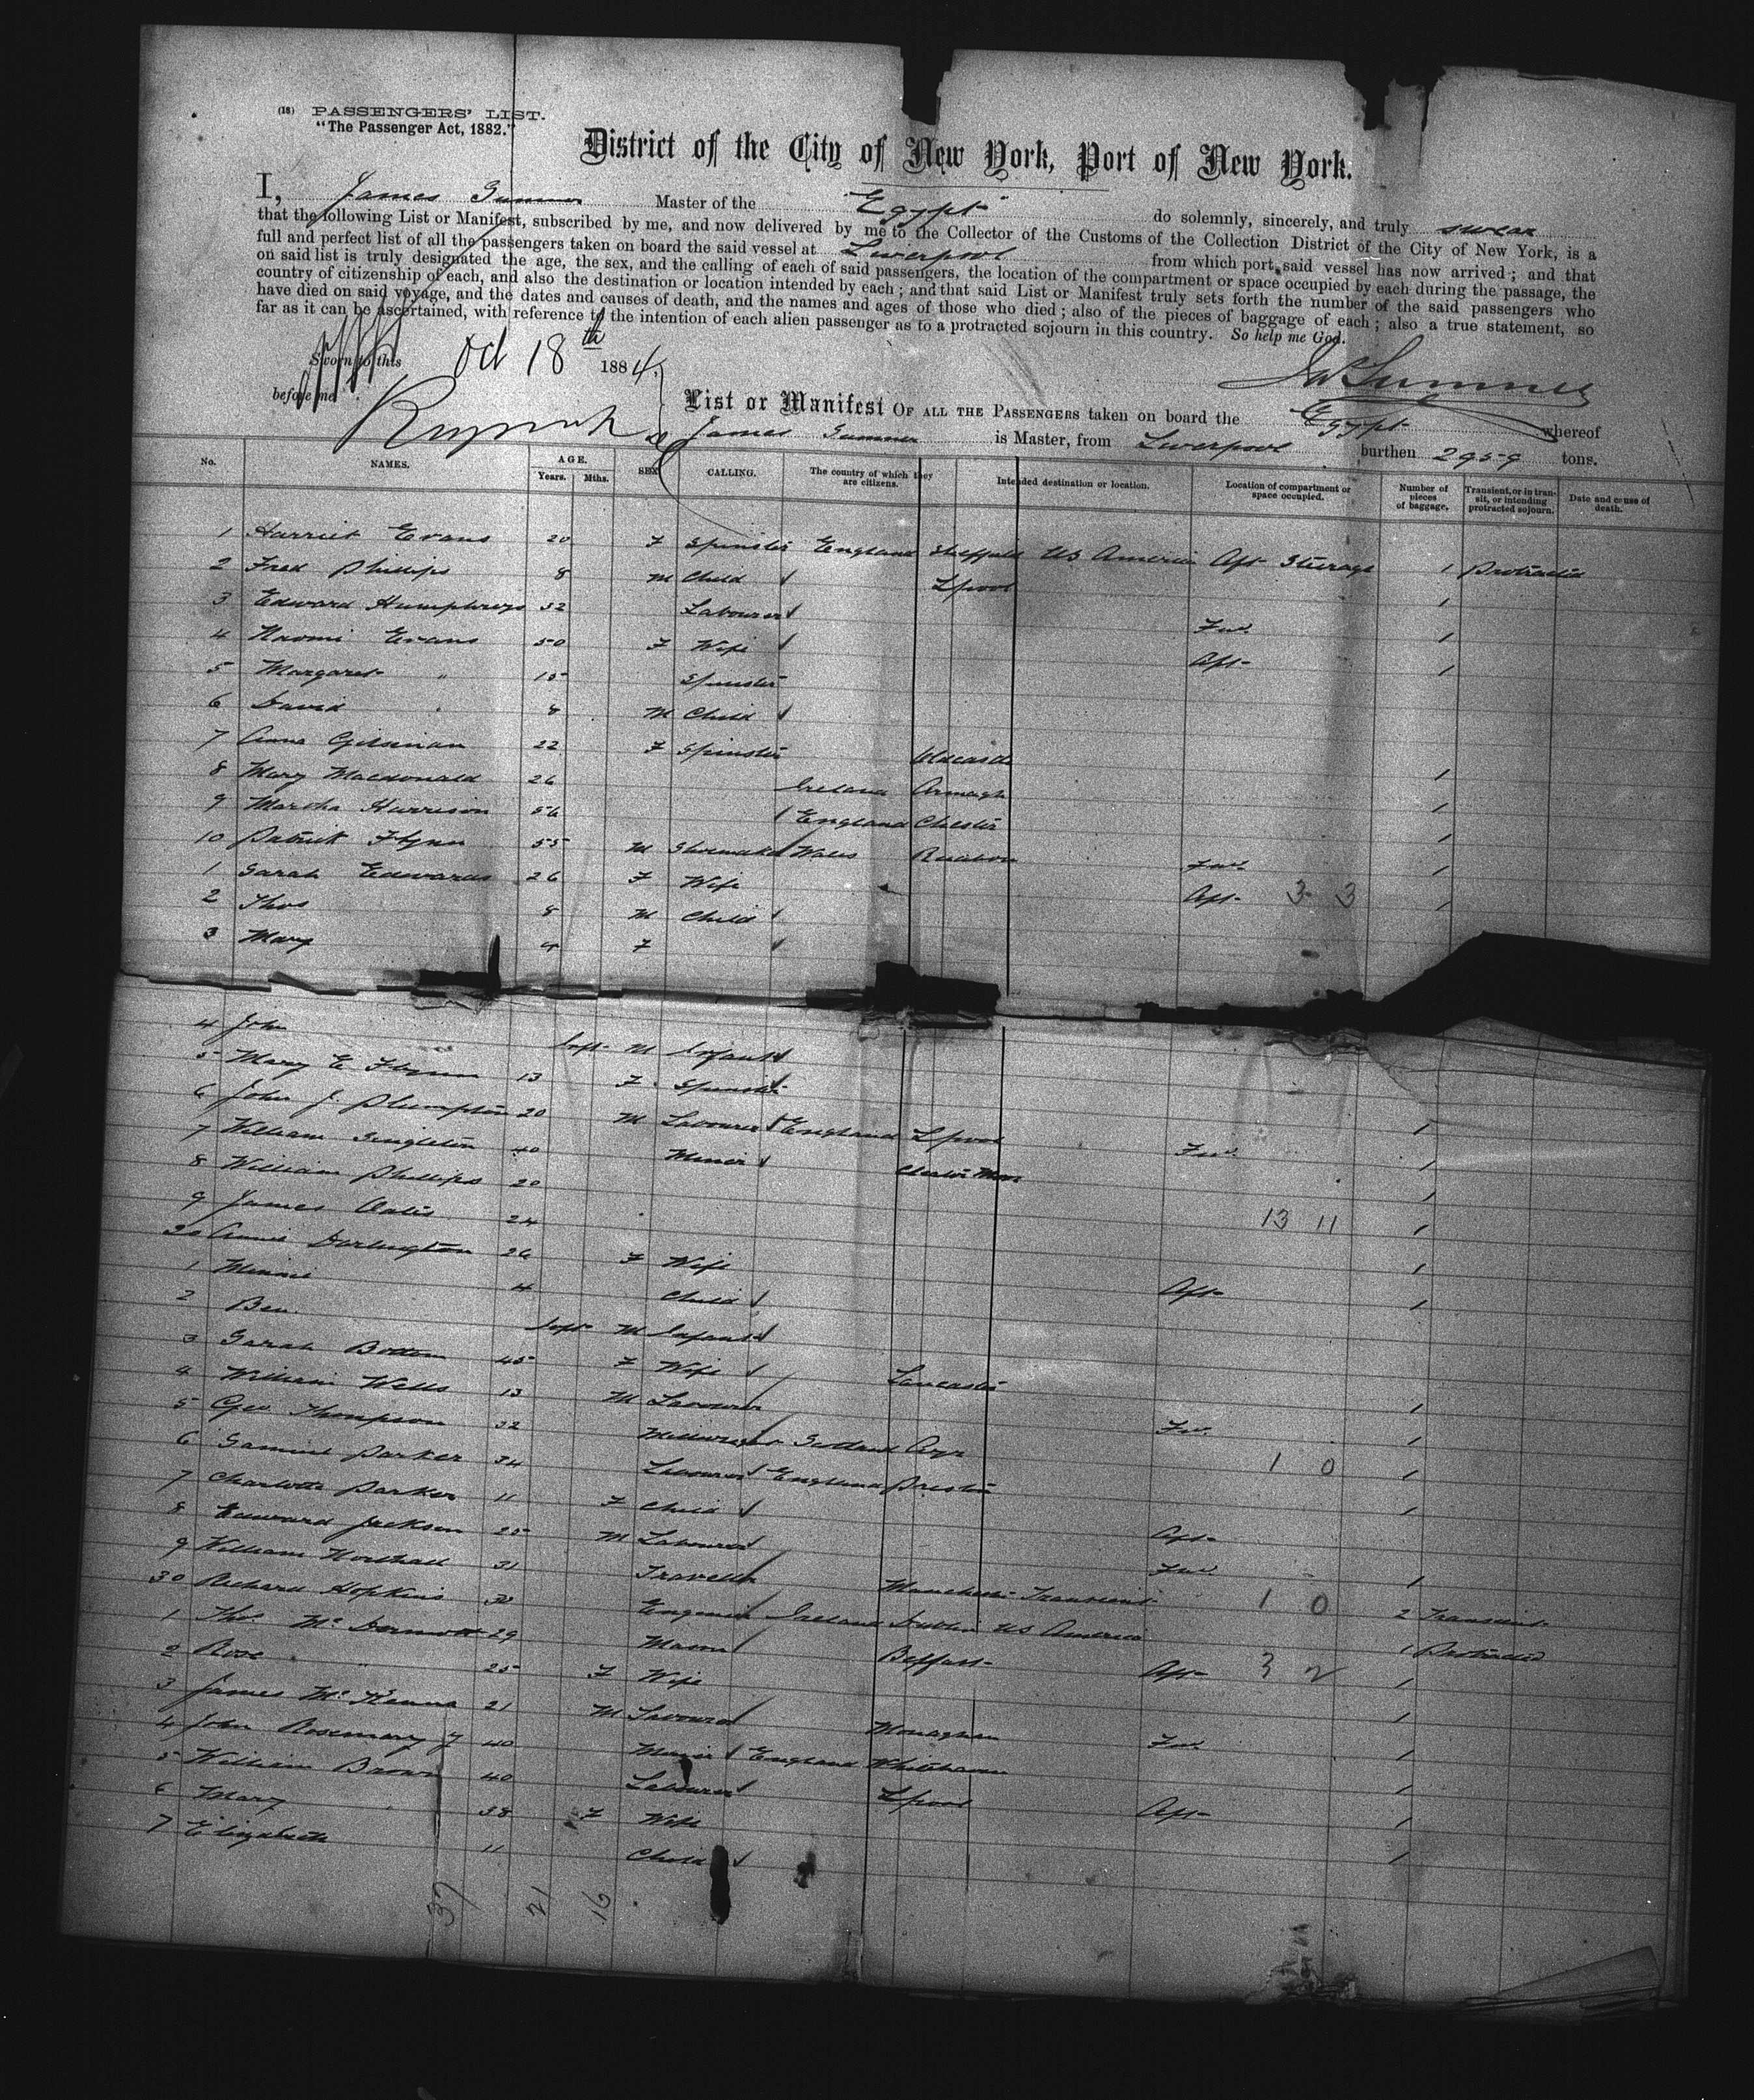 (18) PASSENGERS' LIST.
"The Passenger Act, 1882."
District of the City of New York, Port of New York.
I, James Sumner Master of the Egypt do solemnly, sincerely, and truly swear
that the following List or Manifest, subscribed by me, and now delivered by me to the Collector of the Customs of the Collection District of the City of New York, is a
full and perfect list of all the passengers taken on board the said vessel at Liverpool from which port said vessel has now arrived; and that
on said list is truly designated the age, the sex, and the calling of each of said passengers, the location of the compartment or space occupied by each during the passage, the
country of citizenship of each, and also the destination or location intended by each; and that said List or Manifest truly sets forth the number of the said passengers who
have died on said voyage, and the dates and causes of death, and the names and ages of those who died; also of the pieces of baggage of each; also a true statement, so
far as it can be ascertained, with reference to the intention of each alien passenger as to a protracted sojourn in this country. So help me God.
Sworn to this Oct 18th 1884
before me
Jas Sumner
List or Manifest OF ALL THE PASSENGERS taken on board the Egypt whereof
James Sumner is Master, from Liverpool burthen 2959 tons.
No. NAMES. AGE. Years. Mths. SEX. CALLING. The country of which they are citizens. Intended destination or location. Location of compartment or space occupied. Number of pieces of baggage. Transient, or in transit, or intending protracted sojourn. Date and cause of death.
1 Harriet Evans 20 F Spinster England Sheffield US America Aft Steerage 1 Protracted
2 Fred Phillips 8 M Child Lpool 1
3 Edward Humphreys 32 Labourer Fwd 1
4 Naomi Evans 50 F Wife Aft 1
5 Margaret " 15 Spinster
6 David " 8 M Child
7 Anna 22 F Spinster 1
8 Mary Macdonald 26 Ireland Armagh 1
9 Martha Harrison 56 England Chester 1
10 Patrick Flynn 55 M Shoemaker Wales Ruabon Fwd 1
1 Sarah Edwards 26 F Wife Aft 3 3 1
2 Thos 8 M Child
3 Mary 4 F
4 John Inft M Infant
5 Mary E Flynn 13 F Spinster
6 John J. Plumpton 20 M Labourer England Lpool Fwd 1
7 William Singleton 40 Miner 1
8 William Phillips 20 1
9 James Oates 24 13 11 1
20 Annie Darlington 26 F Wife Aft 1
1 Minnie 4 Child 1
2 Ben Inft M Infant
3 Sarah Bottom 45 F Wife Lancaster 1
4 William Wells 13 M Labourer Fwd 1
5 Geo Thompson 32 Millwright Scotland Ayr 1 0 1
6 Samuel Parker 34 Labourer England Preston 1
7 Charlotte Parker 11 F Child Aft
8 Edward Jackson 25 M Labourer Fwd 1
9 William 31 Traveller Manchester Transient 1 0 2 Transient
30 Richard Hopkins 32 Engineer Ireland Dublin US America 1 Protracted
1 Thos McDermott 29 Mason Belfast Aft 3 2 1
2 Rose " 25 F Wife 1
3 James McKenna 21 M Labourer Monaghan Fwd 1
4 John 40 Miner England Whitehaven 1
5 William Brown 40 Labourer Lpool Aft 1
6 Mary " 38 F Wife 1
7 Elizabeth 11 Child
37 21 16